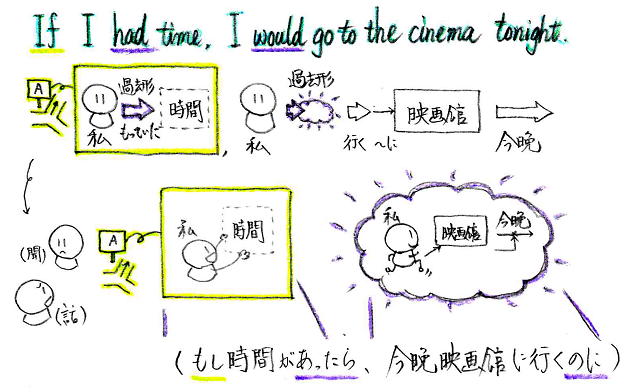 If I had time, I would go to the cinema tonight.
A 過去形 過去形
時間 映画館
私 もっていた , 私 行く 〜に 今晩
私 時間 私 映画館 今晩
(聞) A
(話)
(もし時間があったら、今晩映画館に行くのに)